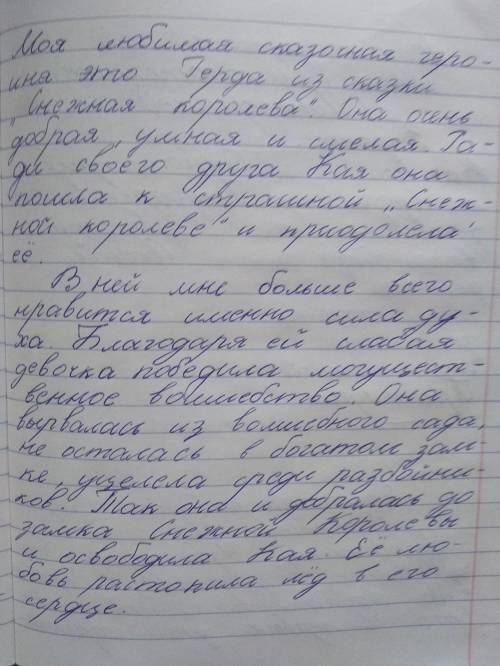 Моя любимая сказочная геро-
ина это Герда из сказки
"Снежная королева". Она очень
добрая, умная и смелая. Ра-
ди своего друга Кая она
пошла к страшной "Снеж-
ной королеве" и приодолела
её.
В ней мне больше всего
нравится именно сила ду-
ха. Благодаря ей слабая
девочка победила могущест-
венное волшебство. Она
вырвалась из волшебного сада,
не осталась в богатом зам-
ке, уцелела среди разбойни-
ков. Так она и добралась до
замка Снежной Королевы
и освободила Кая. Её лю-
бовь растопила лёд в его
сердце.